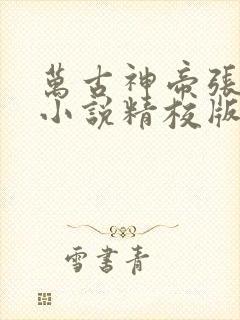 萬古神帝張
小說精校版
雪書青